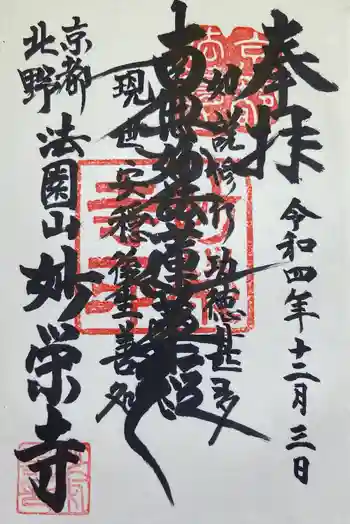 奉拝
令和四年十二月三日
如説修行功徳甚多
南無妙法蓮華経
現世安穏後生善処
京都
北野
法園山
妙栄寺